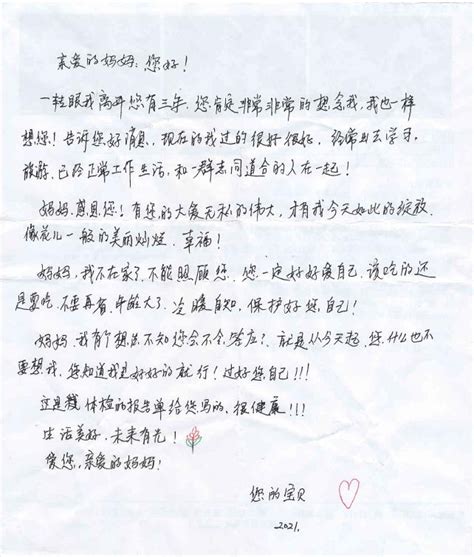 亲爱的妈妈：您好！
一转眼我离开您有三年，您肯定非常非常的想念我，我也一样
想您！告诉您好消息，现在的我过的很好很好，经常出去学习，
旅游，已经正常工作生活，和一群志同道合的人在一起！
妈妈，感恩您！有您的大爱无私的伟大，才有我今天如此的绽放，
像花儿一般的美丽灿烂，幸福！
妈妈，我不在家了，不能照顾您，您一定好好爱自己，该吃的还
是要吃，不要再省，年龄大了，冷暖自知，保护好您自己！
妈妈，我有个想法不知您会不会答应？就是从今天起，您什么也不
要想我，您知道我是好好的就行！过好您自己！！！
这是我体检的报告单给您写的，报健康！！！
生活美好，未来有光！
爱您，亲爱的妈妈！
您的宝贝
2021.